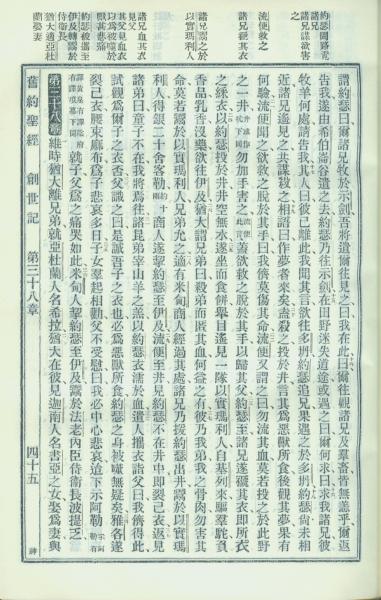 諸兄謀欲害之
流便救之
諸兄褫其衣
諸兄鬻之於以實瑪利人
諸兄血其衣見父
約瑟被攜至伊及轉鬻侍衛長
謂約瑟曰爾諸兄牧於示劍吾將遣爾往見之曰我在此曰爾往觀諸兄及羣畜皆無恙乎爾返
告我遂由希伯崙谷遣之去約瑟乃往示劍在田野迷失道途或遇之曰爾何求曰求我諸兄彼
牧羊何處請告我其人曰彼已離此我聞其言欲往多坍約瑟追兄果遇之於多坍約瑟尚未相
近諸兄遙見之共謀殺之相語曰作夢者來矣盍殺之投於井言其爲惡獸所食後觀其夢果有
何驗流便聞之欲救之脫於其手曰我儕莫傷其命流便又謂之曰勿流其血莫若投之於此野
之一井勿加手害之蓋欲救之脫於其手以歸其父約瑟至諸兄遂褫其衣即所衣
之綵衣以約瑟投於井井空無水遂坐而食餅舉目遙見一隊以實瑪利人自基列來驅羣駝負
香品乳香沒藥欲往伊及猶大謂諸兄弟曰殺弟而匿其血何益之有彼乃我弟我之骨肉勿害其
命莫若鬻於以實瑪利人兄弟允之適有米甸商人經過其處諸兄乃援約瑟出井鬻於以實瑪
利人得銀二十舍客勒商人遂挈約瑟至伊及流便至井見約瑟不在井中即裂己衣返見
諸弟曰童子不在我將焉往諸昆弟宰山羊之羔以約瑟衣濡於血遣人攜衣詣父曰我儕得此
試觀爲爾子之衣否父識之曰是誠吾子之衣也必爲惡獸所食約瑟之身被噬無疑矣雅各遂
裂己衣腰束麻布爲子悲哀多日子女羣起相勸父不受慰曰我必中心悲哀逝下示阿勒
就子父爲之痛哭如此米甸人挈約瑟至伊及鬻於法老內臣侍衛長波提乏
第三十八章 維時猶大離兄弟就亞杜蘭人名希拉猶大在彼見迦南人名書亞之女娶爲妻與
舊約聖經 創世記 第三十八章 四十五 神